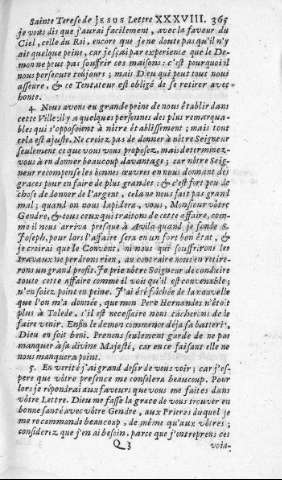 Sainte Terese de JESUS Lettre XXXVIII. 365
je vous dis que j'aurai facilement, avec la faveur du
Ciel, celle du Roi, encore que je ne doute pas qu'il n'y
ait quelque peine, car je sçai par experience que le De-
mon ne peut pas souffrir ces maisons: c'est pourquoi il
nous persecute toûjours; mais Dieu qui peut tout nous
asseure, & ce Tentateur est obligé de se retirer avec
honte.
4. Nous avons eu grande peine de nous établir dans
cette Ville; il y a quelques personnes des plus remarqua-
bles qui s'opposoient à nôtre établissement; mais tout
cela est ajusté. Ne croiez pas de donner à nôtre Seigneur
seulement ce que vous vous proposez, mais determinez-
vous à en donner beaucoup davantage; car nôtre Sei-
gneur recompense les bonnes œuvres en nous donnant des
graces pour en faire de plus grandes: & c'est fort peu de
chose de donner de l'argent, cela ne nous fait pas grand
mal; quand on nous lapidera, vous, Monsieur vôtre
Gendre, & tous ceux qui traitons de cette affaire, com-
me il nous arriva presque à Avila quand je fondé S.
Joseph, pour lors l'affaire sera en fort bon état, &
je croirai que le Convent, ni nous qui souffrirons les
travaux ne perdrons rien, au contraire nous en retire-
rons un grand profit. Je prie nôtre Seigneur de conduire
toute cette affaire comme il voit qu'il est convenable;
n'en soiez point en peine. J'ai été fâchée de la nouvelle
que l'on m'a donnée, que mon Pere Hernandes n'étoit
plus à Tolede, s'il est necessaire nous tâcherons de le
faire venir. Enfin le demon commence déja sa batterie,
Dieu en soit beni. Prenons seulement garde de ne pas
manquer à sa divine Majesté, car en ce faisant elle ne
nous manquera point.
5. En verité j'ai grand desir de vous voir; car j'es-
pere que vôtre presence me consolera beaucoup. Pour
lors je répondrai aux faveurs que vous me faites dans
vôtre Lettre. Dieu me fasse la grace de vous trouver en
bonne santé avec vôtre Gendre, aux Prieres duquel je
me recommande beaucoup, de même qu'aux vôtres;
considerez que j'en ai besoin, parce que j'entreprens ces
Q 3 voia-